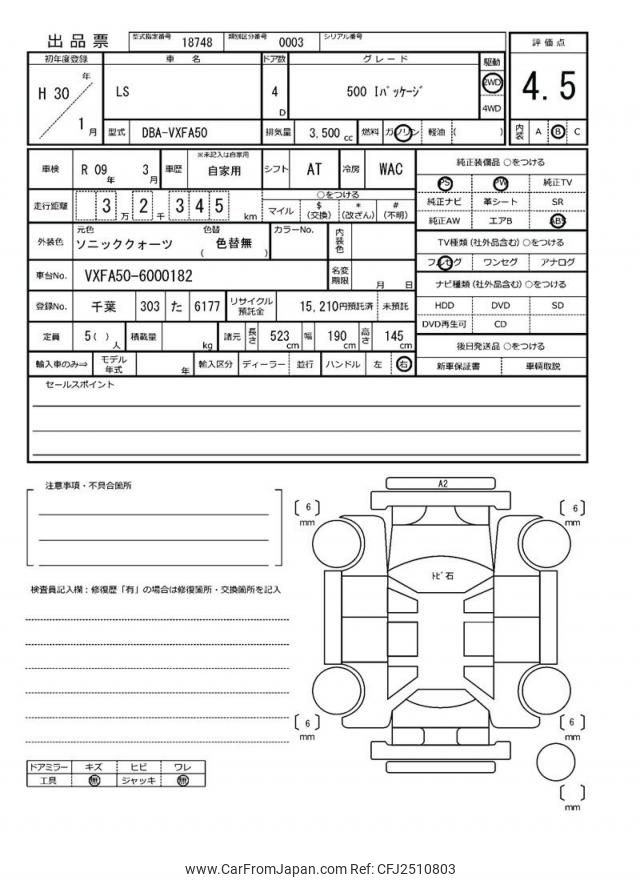 出品票 型式指定番号 18748 類別区分番号 0003 シリアル番号
初年度登録 車名 ドア数 グレード 駆動 評価点
H 30 年 1 月 LS 4 D 500 Iパッケージ 2WD 4WD 4.5
型式 DBA-VXFA50 排気量 3,500 cc 燃料 ガソリン 軽油 ( ) 内装 A B C
車検 R 09 年 3 月 車歴 ※未記入は自家用 自家用 シフト AT 冷房 WAC 純正装備品 ○をつける
PS PW 純正TV
走行距離 3 万 2 千 3 4 5 km ○をつける マイル $ (交換) * (改ざん) # (不明) 純正ナビ 革シート SR
純正AW エアB ABS
外装色 元色 ソニッククォーツ 色替 ( 色替無 ) カラーNo. 内装色 TV種類 (社外品含む) ○をつける
フルセグ ワンセグ アナログ
車台No. VXFA50-6000182 名変期限 月 日 ナビ種類 (社外品含む) ○をつける
登録No. 千葉 303 た 6177 リサイクル預託金 15,210円預託済 未預託 HDD DVD SD
DVD再生可 CD
定員 5 ( ) 人 積載量 kg 諸元 長さ 523 cm 幅 190 cm 高さ 145 cm 後日発送品 ○をつける
輸入車のみ⇒ モデル年式 年 輸入区分 ディーラー 並行 ハンドル 左 右 新車保証書 車輌取説
セールスポイント
注意事項・不具合箇所
A2
[ 6 ] mm [ 6 ] mm
トビ石
検査員記入欄：修復歴「有」の場合は修復箇所・交換箇所を記入
[ 6 ] mm [ 6 ] mm
ドアミラー キズ ヒビ ワレ
工具 無 ジャッキ 無
[ ] mm
www.CarFromJapan.com Ref: CFJ2510803